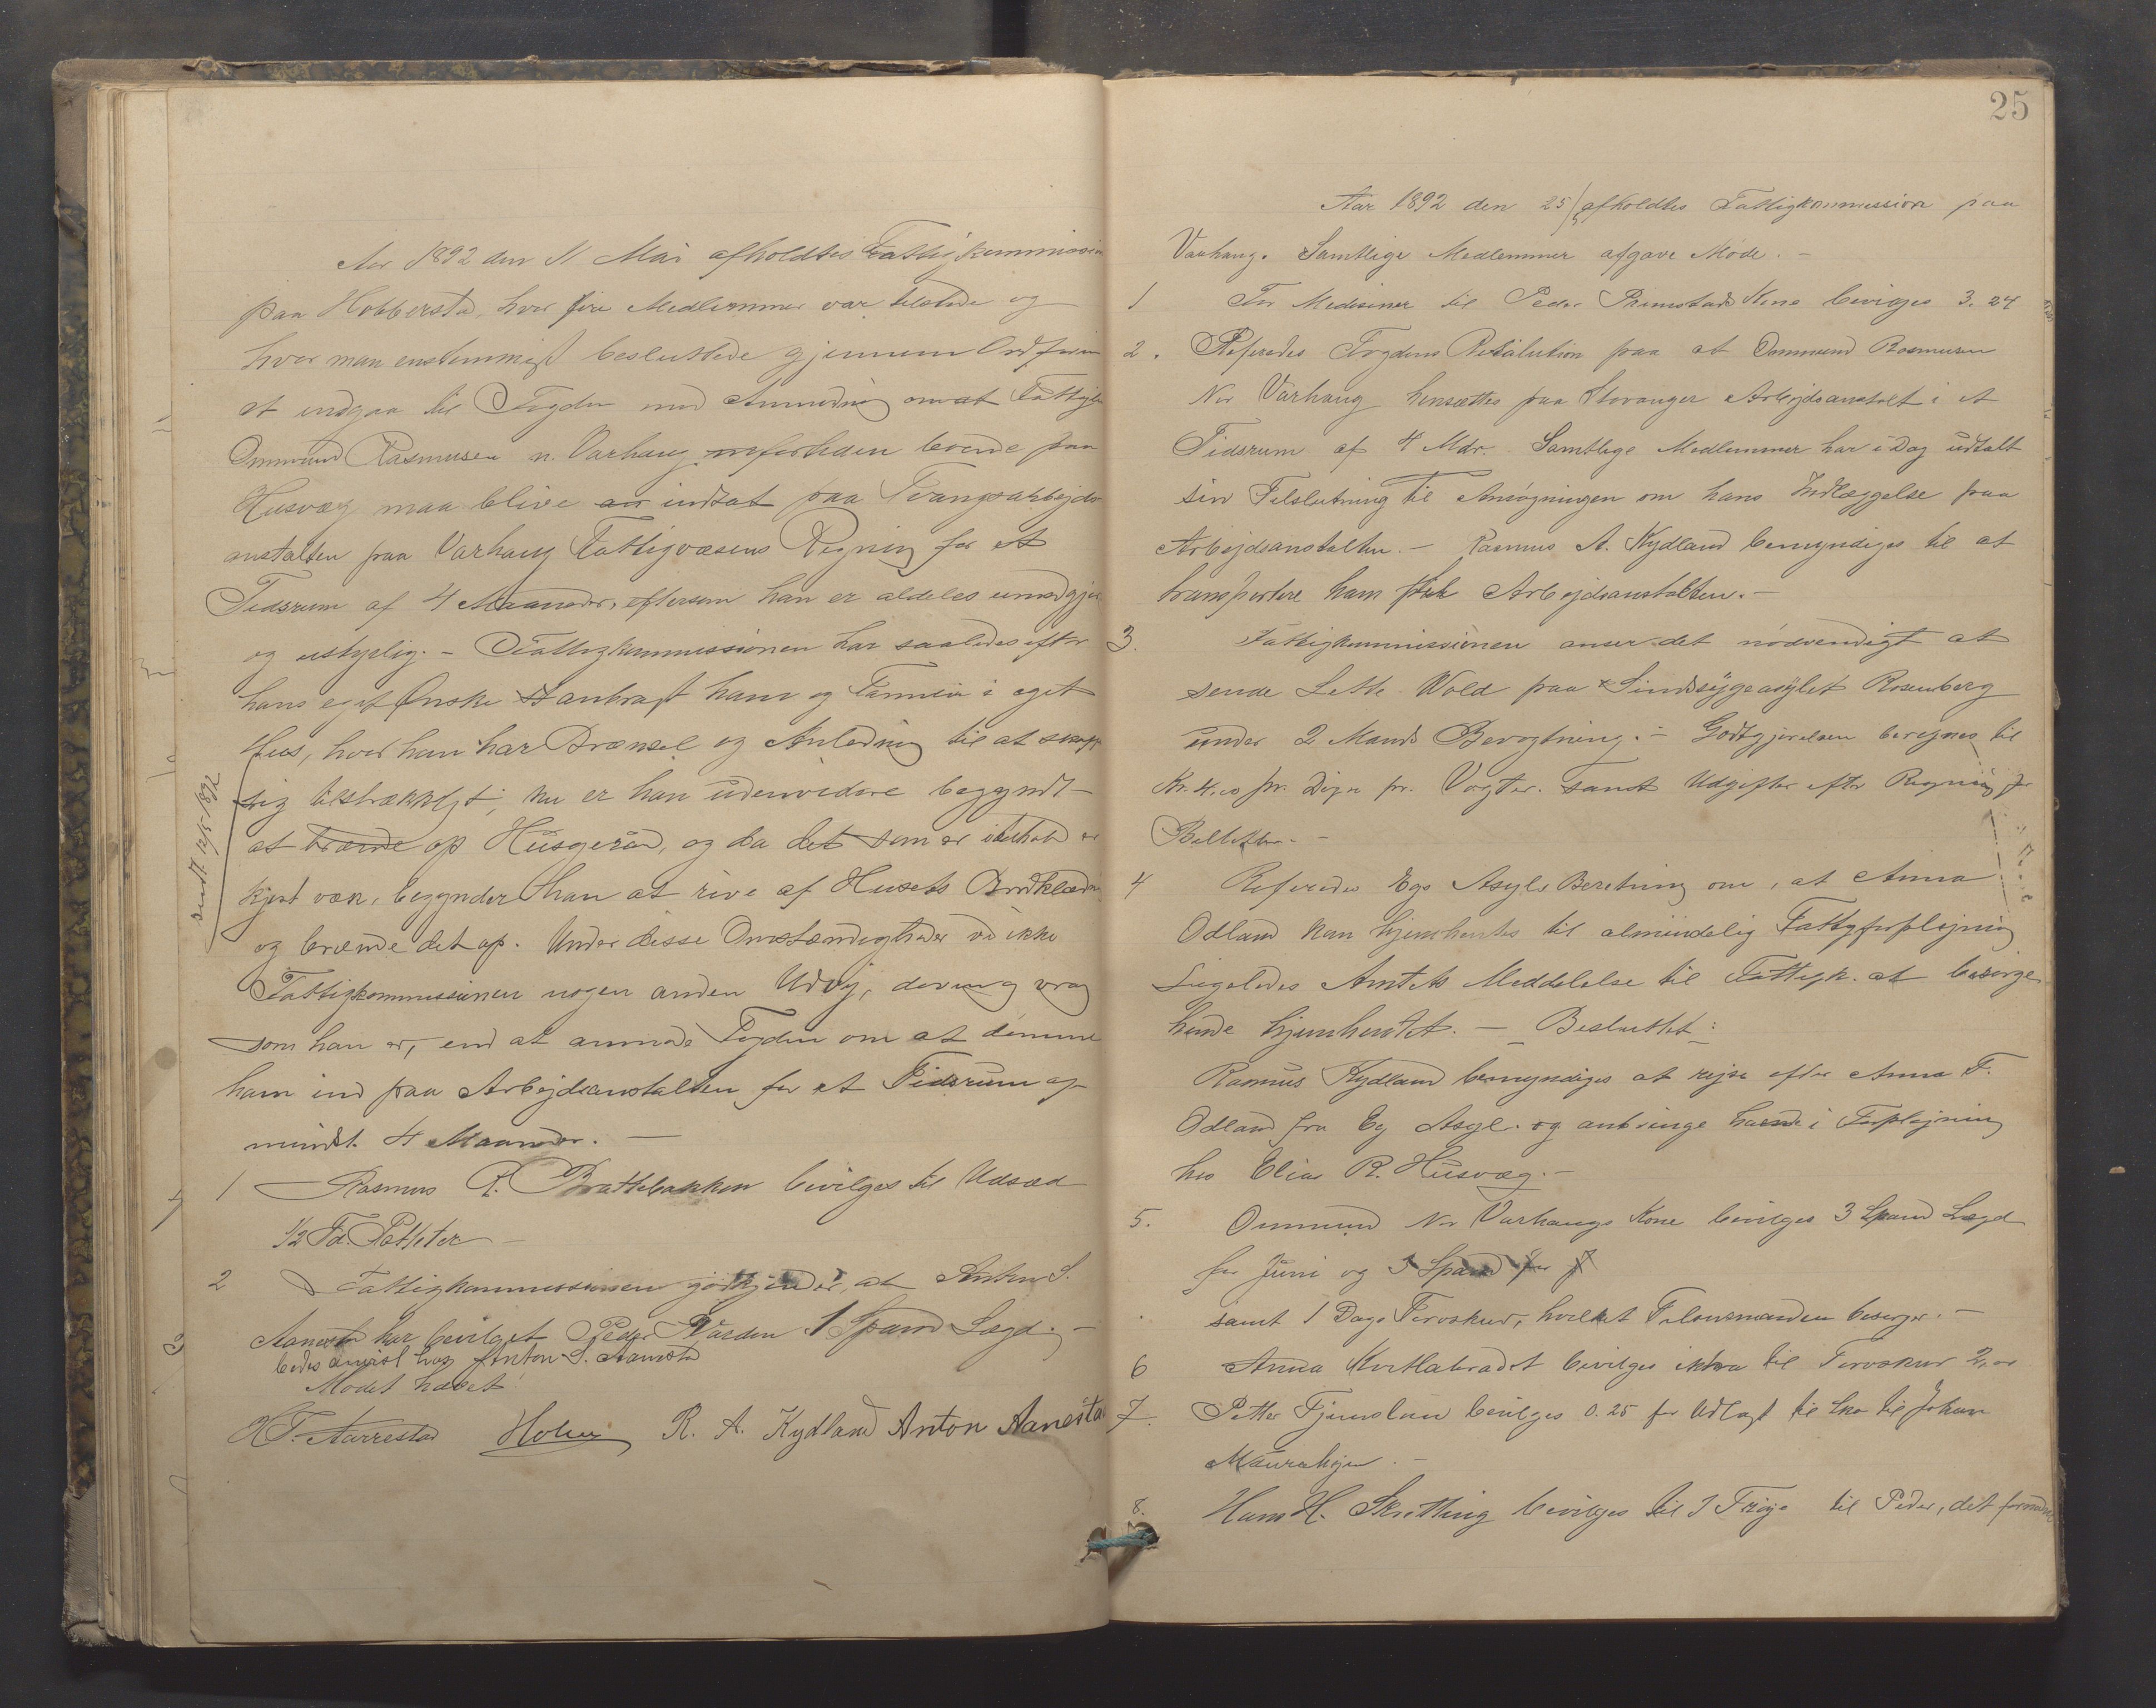 Aar 1892 den 11 Mai afholdtes Fattigkommission
paa Hobberstad, hvor fire Medlemmer var tilstede og
hvor man enstemmigt besluttede gjennem Ordføren
at indgaa til Fogden med Anmodning om at Fattigl
Ommund Rasmusen n. Varhaug boende paa
Husvæg maa blive indsat paa Tvangsarbejds
anstalten paa Varhaug Fattigvæsens Regning for et
Tidsrum af 4 Maaneder, eftersom han er aldeles umedgjør
og ustyrlig. – Fattigkommissionen har saaledes efter
hans eget Ønske anbragt ham og Familie i eget
Hus, hvor han har Brænsel og Anledning til at skaffe
sig tilstrækkligt; nu er han udenvidere begyndt
at brænde op Husgeraad, og da det som er
kjørt væk, begynder han at rive af Husets Bordklædning
og brænde det op. Under disse Omstændigheder ved ikke
Fattigkommissionen nogen anden Udvej, doven og vrag
som han er, end at anmode Fogden om at dømme
ham ind paa Arbejdsanstalten for et Tidsrum af
mindst 4 Maaneder. —
sendt 12/5 1892
1 Rasmus R. Brattebakken bevilges til Udsæd
1/2 Td. Potteter –
2 Fattigkommissionen godkjender, at Anton S.
Aanestad har bevilget Peder Varden 1 Spand Lægd. –
bedes anvist hos Anton S. Aanestad
Mødet hævet
Aarrestad Holen R. A. Kydland Anton Aanesta
25
Aar 1892 den 25/5 afholdtes Fattigkommission paa
Varhaug. Samtlige Medlemmer afgave Møde. –
1 For Medisiner til Peder Rimestads Kone bevilges 3.24
2. Referedes Fogdens Resolution paa at Ommund Rasmusen
Nr Varhaug hensættes paa Stavanger Arbejdsanstalt i et
Tidsrum af 4 Mdr. Samtlige Medlemmer har i Dag udtalt
sin Tilslutning til Ansøgningen om hans Indlæggelse paa
Arbejdsanstalten. – Rasmus A. Kydland bemyndiges til at
transportere ham til Arbejdsanstalten. –
3. Fattigkommissionen anser det nødvendigt at
sende Lette Wold paa Sindssygeasylet Rosenberg
under 2 Mands Bevogtning. – Godtgjørelsen beregnes til
Kr. 4.00 pr. Døgn pr. Vogter. samt Udgifter efter Regning for
Billetter. –
4 Referedes Egs Asyls Beretning om, at Anna
Odland kan hjemhentes til almindelig Fattigforplejning
Ligeledes Amtets Meddelelse til Fattigk. at besørge
hende hjemhentet. – Besluttet:
Rasmus Kydland bemyndiges at rejse efter Anna T.
Odland fra Eg Asyl. og anbringe hende i Forplejning
hos Elias R. Husvæg. –
5. Ommund Nr Varhaugs Kone bevilges 3 Spand Lægd
for Juni og 3 Spand for J
samt 1 Dags Torvskur, hvilket Tilsynsmanden besørger. –
6 Anna Kvitlabradet bevilges ekstra til Torvskur 2,00
7. Petter Fjermsluen bevilges 0.25 for Udlagt til Sko til Johan
Maurahejen. –
8. Hans H. Skretting bevilges til 1 Trøje til Peder, det fornødne